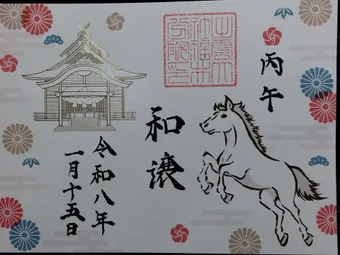 丙午
和譲
令和八年
一月十五日